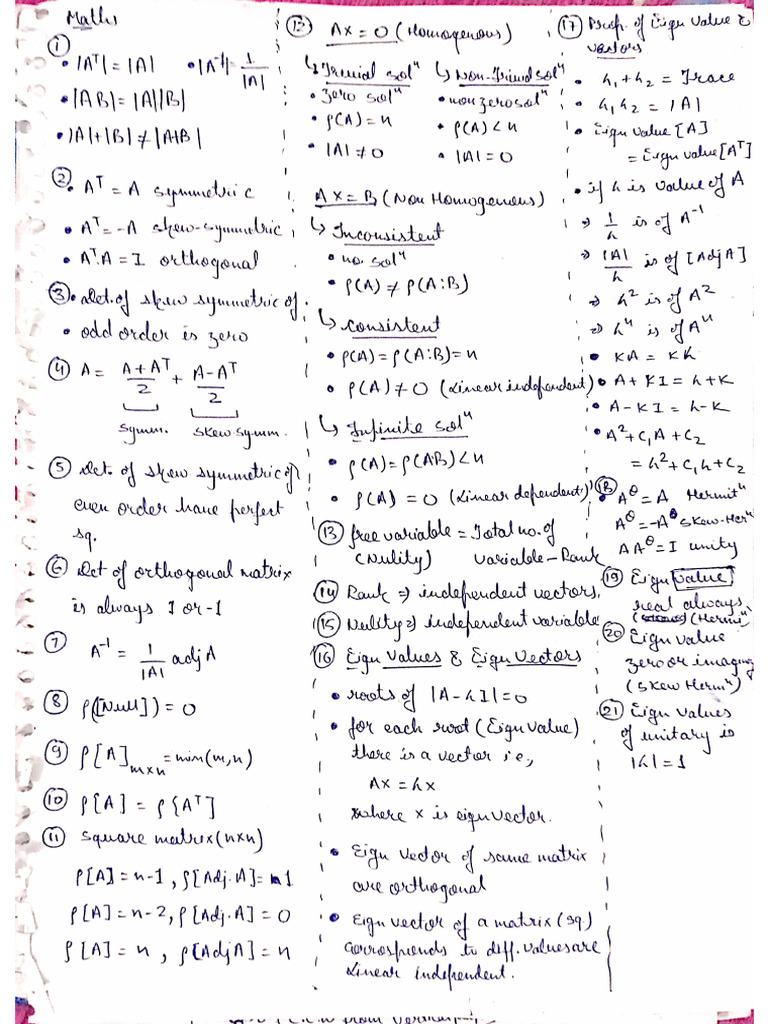 Maths
①
• |Aᵀ| = |A| • |A⁻¹| = 1/|A|
• |AB| = |A||B|
• |A|+|B| ≠ |A+B|
② • Aᵀ = A symmetric
• Aᵀ = -A skew-symmetric
• Aᵀ.A = I orthogonal
③ • Det. of skew symmetric of
• odd order is zero
④ A = (A+Aᵀ)/2 + (A-Aᵀ)/2
symm. skew symm.
⑤ Det. of skew symmetric of
even order have perfect
sq.
⑥ Det of orthogonal matrix
is always 1 or -1
⑦ A⁻¹ = 1/|A| adj A
⑧ ρ([Null]) = 0
⑨ ρ[A]ₘₓₙ = min(m,n)
⑩ ρ[A] = ρ{Aᵀ]
⑪ square matrix (n×n)
ρ[A] = n-1, ρ[Adj.A] = 1
ρ[A] = n-2, ρ[Adj.A] = 0
ρ[A] = n, ρ[AdjA] = n
⑫ AX = 0 (Homogenous)
↳ Trivial solⁿ ↳ Non-Trivial solⁿ
• zero solⁿ • non zero solⁿ
• ρ(A) = n • ρ(A) < n
• |A| ≠ 0 • |A| = 0
AX = B (Non Homogenous)
↳ Inconsistent
• no. solⁿ
• ρ(A) ≠ ρ(A:B)
↳ consistent
• ρ(A) = ρ(A:B) = n
• ρ(A) ≠ 0 (Linear independent)
↳ Infinite solⁿ
• ρ(A) = ρ(AB) < n
• ρ(A) = 0 (Linear dependent)
⑬ free variable = Total no. of
(Nulity) variable - Rank
⑭ Rank ⇒ independent vectors,
⑮ Nulity ⇒ independent variable
⑯ Eign Values & Eign Vectors
• roots of |A-λI| = 0
• for each root (Eign Value)
there is a vector i.e,
AX = λx
where x is eign vector.
• Eign Vector of same matrix
are orthogonal
• Eign vector of a matrix (sq.)
corrosponds to diff. values are
Linear independent.
⑰ Prop. of Eign Value &
vectors
• λ₁ + λ₂ = Trace
• λ₁ λ₂ = |A|
• Eign Value [A]
= Eign value [Aᵀ]
• if λ is value of A
⇒ 1/λ is of A⁻¹
⇒ |A|/λ is of [Adj A]
⇒ λ² is of A²
⇒ λⁿ is of Aⁿ
• KA = Kλ
• A + KI = λ + K
• A - KI = λ - K
• A² + C₁A + C₂
= λ² + C₁λ + C₂
⑱ • Aᶿ = A Hermitⁿ
Aᶿ = -Aᶿ skew-Herⁿ
AAᶿ = I unity
⑲ Eign Value
real always
(Hermiⁿ)
⑳ Eign Value
zero or imaging
(skew Hermⁿ)
㉑ Eign Values
of unitary is
|λ| = 1